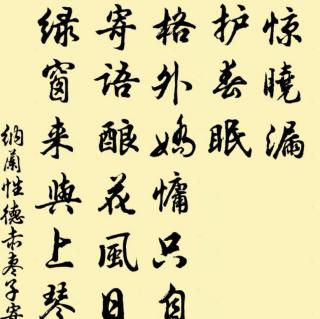 惊曉漏
护春眠
格外娇慵只自
寄语酿花風日
绿窗来與上琴
纳蘭性德赤枣子寄